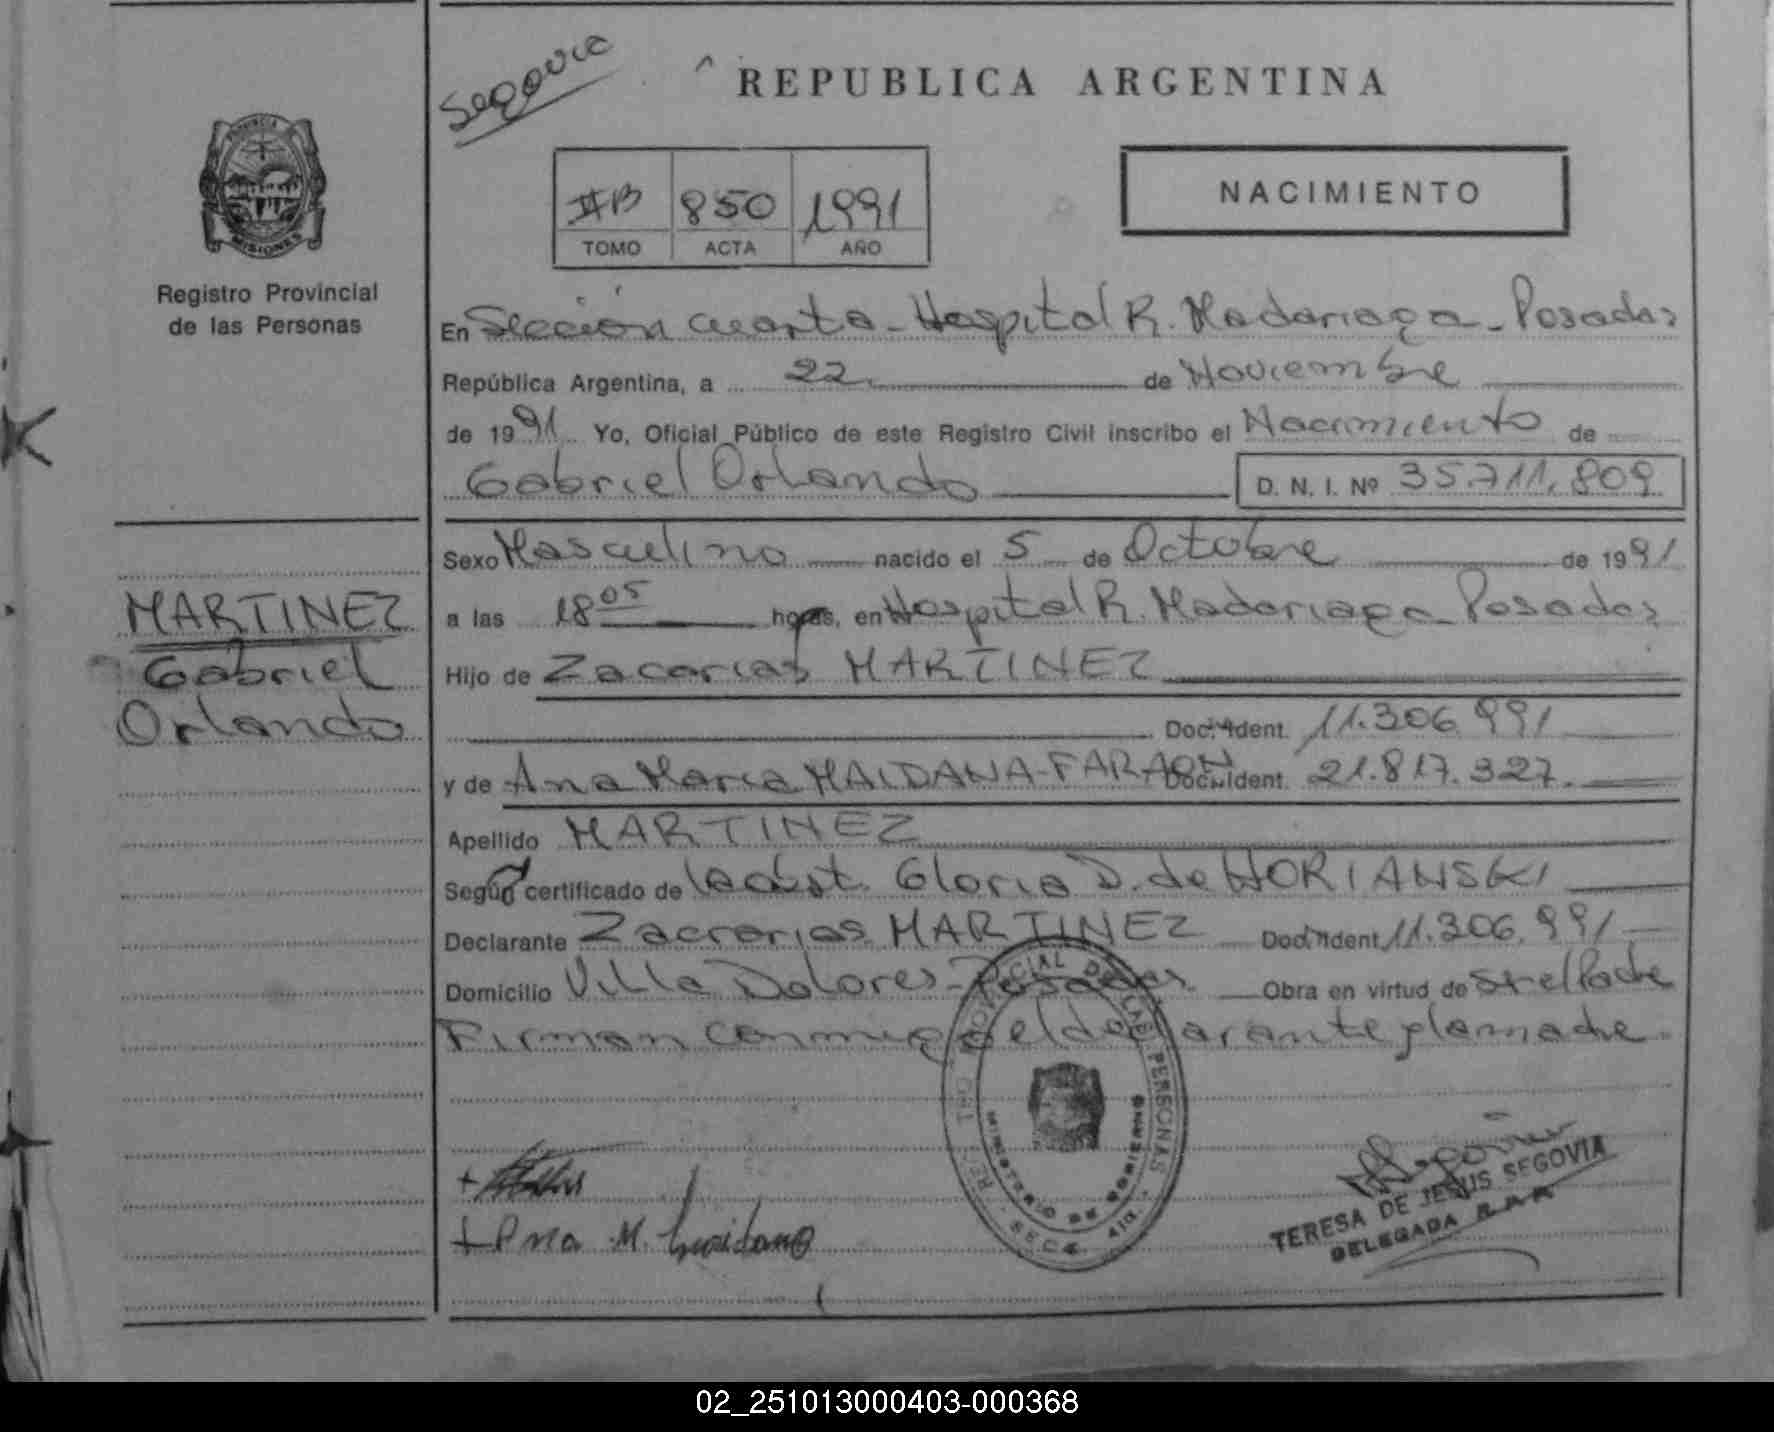 Segovia
REPUBLICA ARGENTINA
PROVINCIA
MISIONES
Registro Provincial
de las Personas
IIB 850 1991
TOMO ACTA AÑO
NACIMIENTO
En Sección cuarta - Hospital R. Madariaga - Posadas
República Argentina, a 22 de Noviembre
de 1991 Yo, Oficial Público de este Registro Civil inscribo el Nacimiento de
Gabriel Orlando D. N. I. Nº 35.711.809
Sexo Masculino nacido el 5 de Octubre de 1991
a las 18 05 horas, en Hospital R. Madariaga - Posadas
Hijo de Zacarias MARTINEZ
Doc. Ident. 11.306.991
y de Ana Maria MALDANA-FARAON Doc. Ident. 21.817.327.
Apellido MARTINEZ
Según certificado de la Obst. Gloria D. de HORIANSKI
Declarante Zacrarias MARTINEZ Doc. Ident. 11.306.991
Domicilio Villa Dolores - Posadas Obra en virtud de ser el Padre
Firman conmigo el declarante y la madre.
MARTINEZ
Gabriel
Orlando
PROVINCIAL DE LAS PERSONAS
MINISTERIO DE GOBIERNO
SECC. 4ta.
+ Ana M.
TERESA DE JESUS SEGOVIA
DELEGADA
02_251013000403-000368